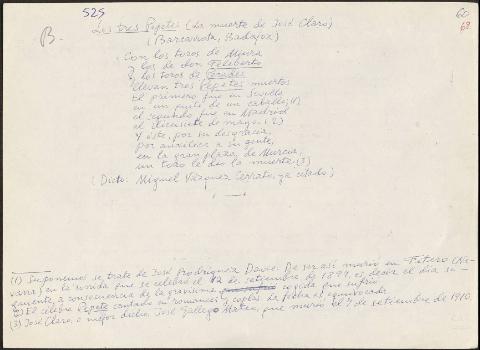 525
60
68
B.
Los tres Pepetes (La muerte de José Claro)
(Barcarrota, Badajoz)
Con los toros de Miura
y los de don Feliberto
y los toros de
llevan tres Pepetes muertos
El primero fue en Sevilla
en un quite de un caballo; (1)
el segundo fue en Madrid
el diecisiete de mayo; (2)
y éste, por su desgracia,
por auxiliar a su gente,
en la gran plaza de Murcia,
un toro le dio la muerte. (3)
(Dictó: Miguel Vázquez Serrato, ya citado)
(1) Suponemos se trate de José Rodríguez Davié. De ser así murió en Fitero (Na-
varra) en la corrida que se celebró el 12 de setiembre de 1899, es decir, el día si-
guiente, a consecuencia de la gravísima cogida que sufrió
(2) El célebre Pepete cantado en romances y coplas. La fecha está equivocada
(3) José Claro, o mejor dicho, José Gallego Mateo, que murió el 7 de setiembre de 1910.